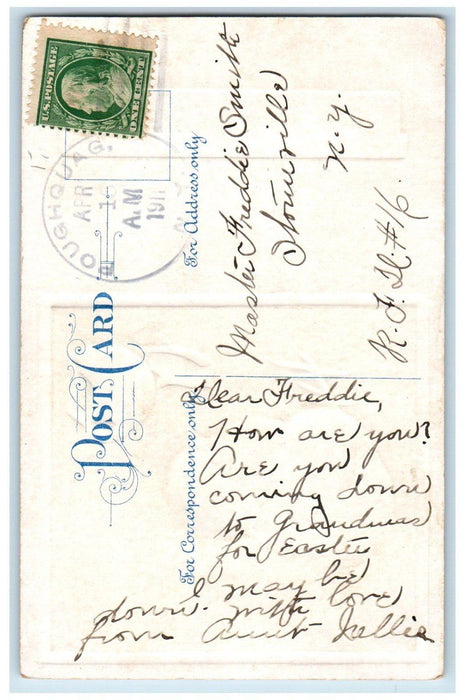 U.S. POSTAGE
ONE CENT
POUGHQUAG.
APR
18
A.M
191
POST CARD
For Address only
Master Freddie Smith
Stormville
N.Y.
R.F.D.#16.
For Correspondence only
Dear Freddie,
How are you?
Are you
coming down
to Grandmas
for Easter
I may be
down. with love
from Aunt Nellie